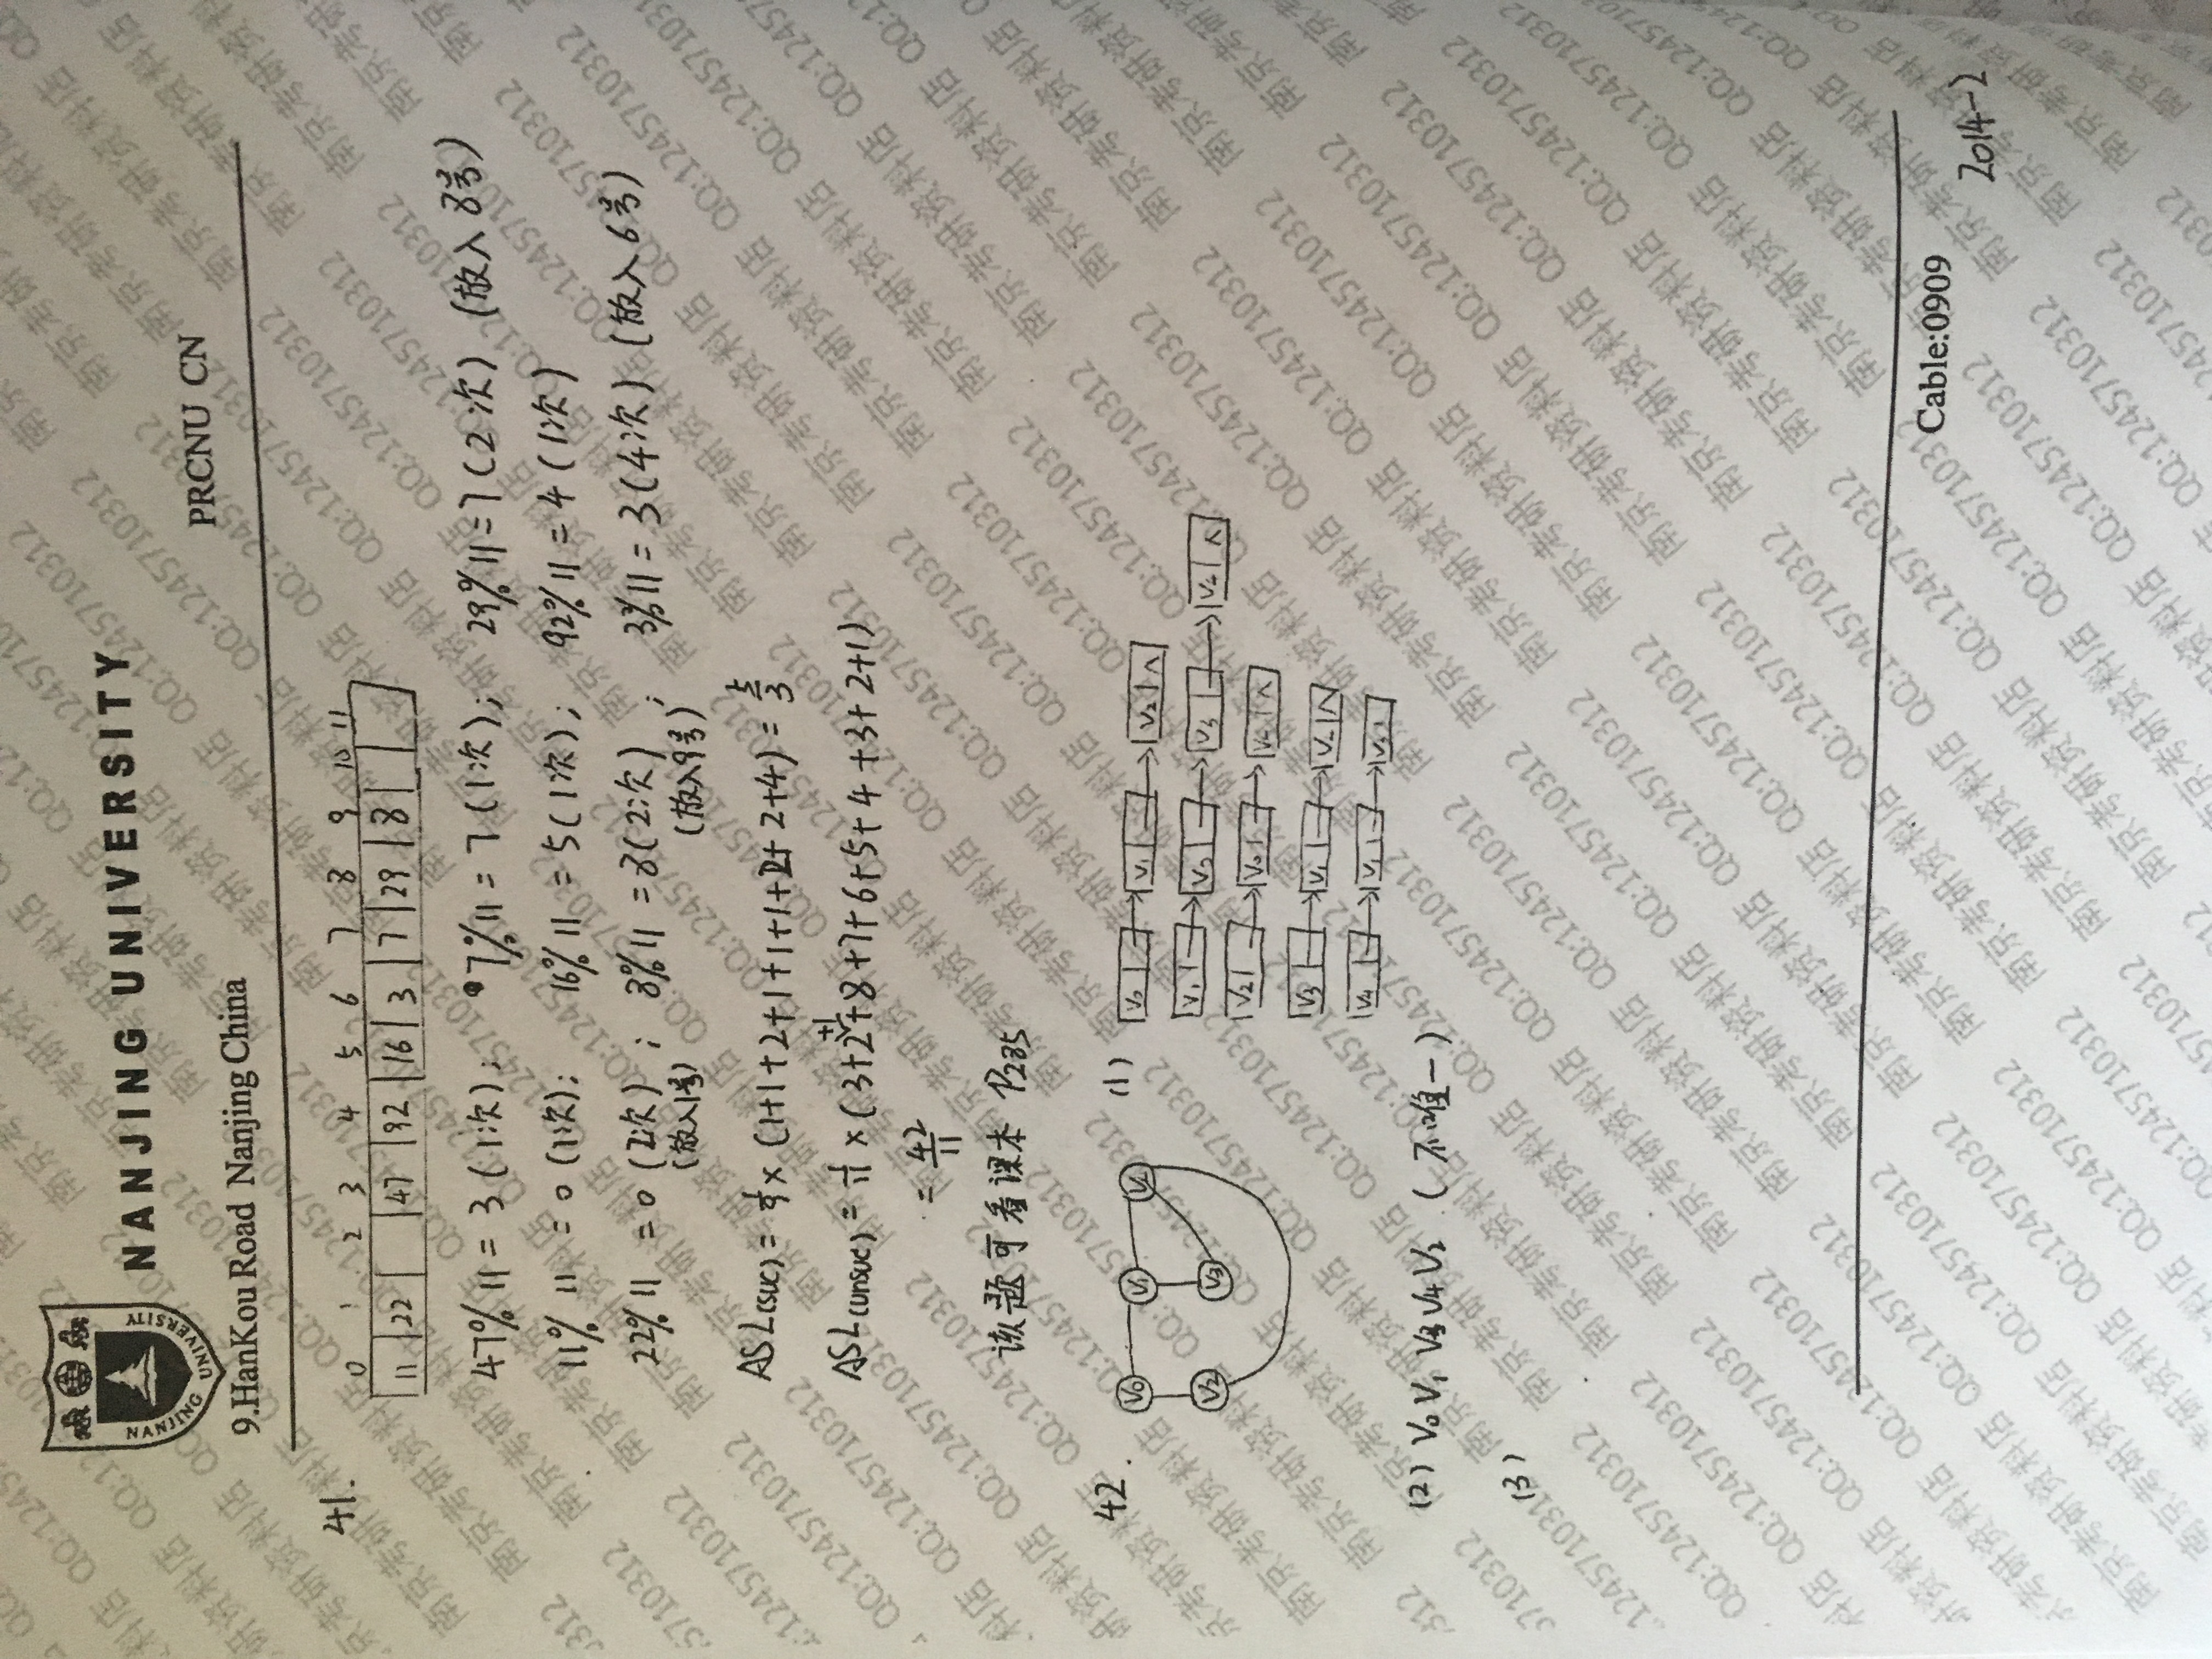 NANJING UNIVERSITY
NANJING UNIVERSITY
PRCNU CN
9.HanKou Road Nanjing China
41.
0 1 2 3 4 5 6 7 8 9 10 11
11 22 47 92 16 3 7 29 8
47%11=3(1次); 7%11=7(1次); 29%11=7(2次) (放入8号)
11%11=0(1次); 16%11=5(1次); 92%11=4(1次)
22%11=0(2次); 8%11=8(2次); 3%11=3(4次) (放入6号)
(放入1号) (放入9号)
ASL(suc)=1/9×(1+1+2+1+1+1+2+2+4)=5/3
+1
ASL(unsuc)=1/11×(3+2+8+7+6+5+4+3+2+1)
=42/11
该题可看课本 P285
42.
V0 V1
V2 V3
(1)
V0 V1 V2 ∧
V1 V0 V3 V4 ∧
V2 V0 ∧
V3 V1 ∧
V4 V1
(2) V0 V1 V3 V4 V2 (不唯一)
(3)
Cable:0909
2014-2
南京考研资料店 QQ:1245710312